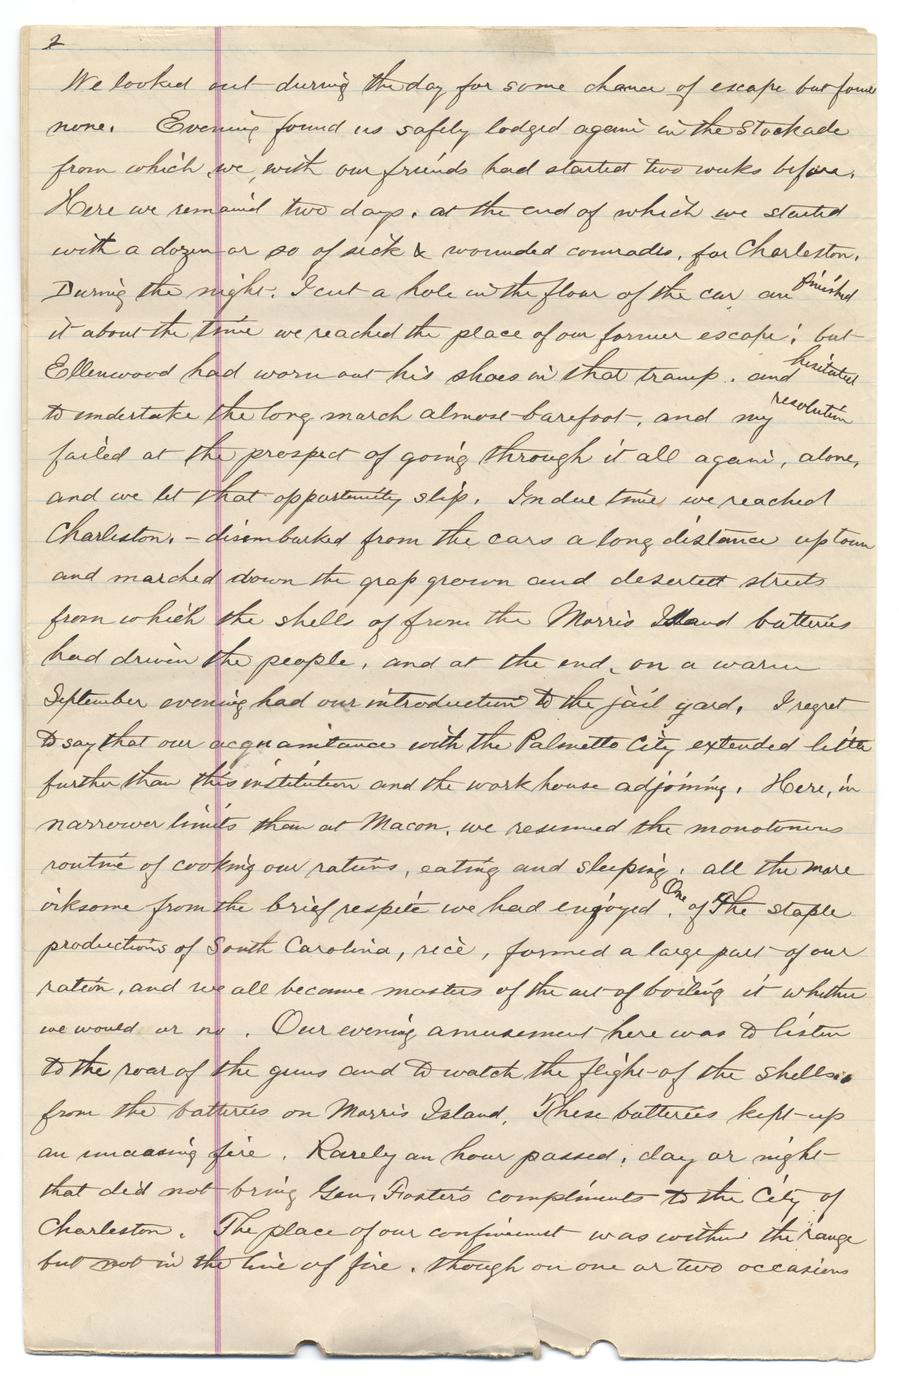 2
We looked out during the day for some chance of escape but found
none. Evening found us safely lodged again in the Stockade
from which we, with our friends had started two weeks before.
Here we remaind two days. at the end of which we started
with a dozen or so of sick & wounded comrades, for Charleston.
During the night. I cut a hole in the floor of the car an finished
it about the time we reached the place of our former escape; but
Ellenwood had worn out his shoes in that tramp. and hesitated
to undertake the long march almost barefoot, and my resolution
failed at the prospect of going through it all again, alone,
and we let that opportunity slip. In due time we reached
Charleston. – disembarked from the cars a long distance up town
and marched down the grass grown and deserted streets
from which the shells of from the Morris Island batteries
had driven the people, and at the end, on a warm
September evening had our introduction to the jail yard. I regret
to say that our acquaintance with the Palmetto City extended little
further than this institution and the work house adjoining. Here, in
narrower limits than at Macon, we resumed the monotonous
routine of cooking our rations, eating and sleeping. all the more
irksome from the brief respite we had enjoyed. One of The staple
productions of South Carolina, rice, formed a large part of our
ration, and we all became masters of the art of boiling it whether
we would or no. Our evening amusement here was to listen
to the roar of the guns and to watch the flight of the shells
from the batteries on Morris Island. These batteries kept up
an unceasing fire. Rarely an hour passed, day or night
that did not bring Gen. Foster's compliments to the City of
Charleston. The place of our confinement was within the range
but not in the line of fire. though on one or two occasions